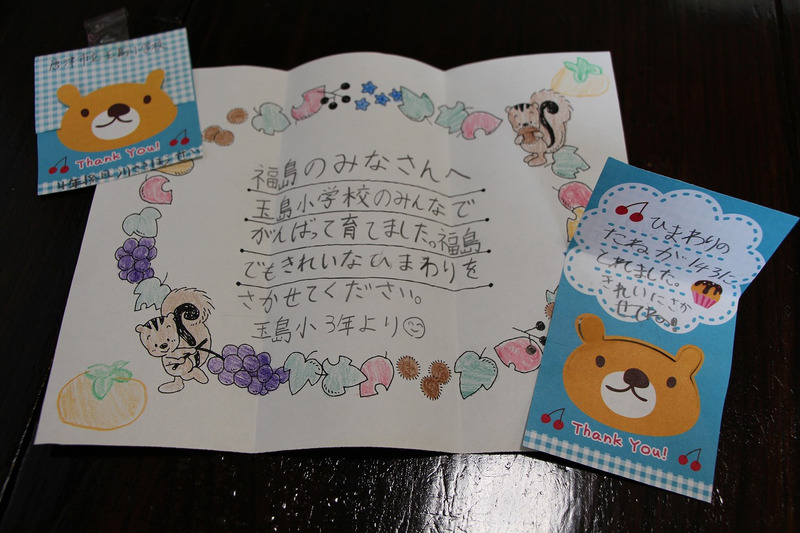 玉島小学校
Thank You!
福島のみなさんへ
玉島小学校のみんなで
がんばって育てました。福島
でもきれいなひまわりを
さかせてください。
玉島小3年より
ひまわりの
たねが
とれました。
きれいにさか
せてね
Thank You!